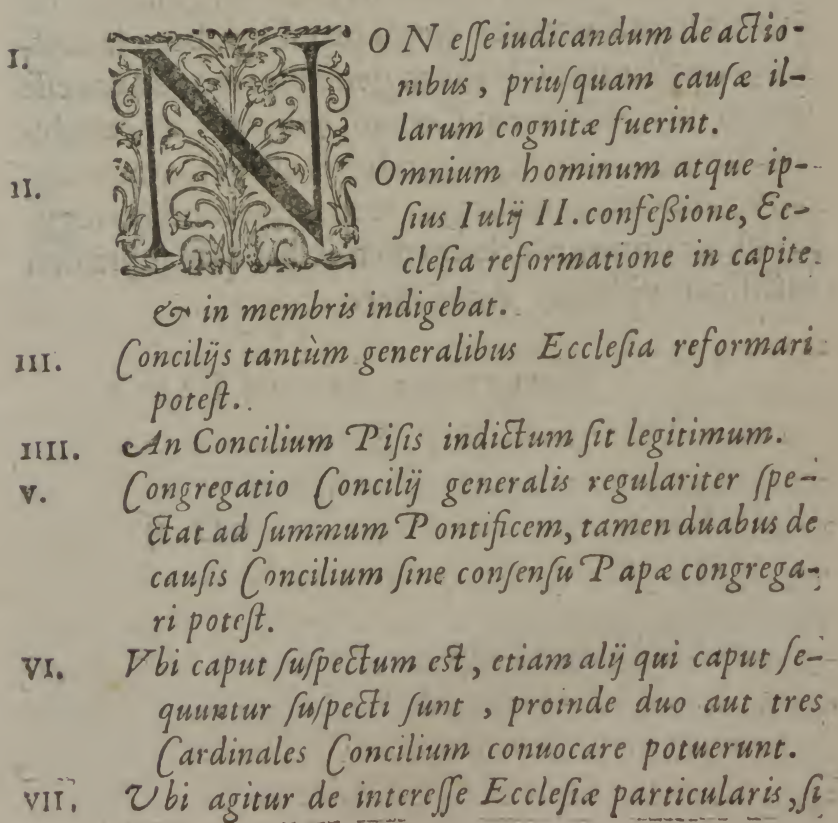 I. NON eſſe iudicandum de actio-
nibus, priuſquam cauſæ il-
larum cognitæ fuerint.
II. Omnium hominum atque ip-
ſius Iulij II. confeſſione, Ec-
cleſia reformatione in capite
& in membris indigebat.
III. Concilijs tantùm generalibus Eccleſia reformari
poteſt.
IIII. An Concilium Piſis indictum ſit legitimum.
V. Congregatio Concilij generalis regulariter ſpe-
ctat ad ſummum Pontificem, tamen duabus de
cauſis Concilium ſine conſenſu Papæ congrega-
ri poteſt.
VI. Vbi caput ſuſpectum eſt, etiam alij qui caput ſe-
quuntur ſuſpecti ſunt, proinde duo aut tres
Cardinales Concilium conuocare potuerunt.
VII. Vbi agitur de intereſſe Eccleſiæ particularis, ſi